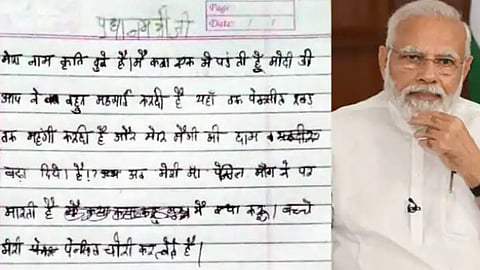 प्रधानमंत्री जी
Page:
Date: / /
मेरा नाम कृति दुबे है। मैं कक्षा एक में पढ़ती हूं मोदी जी
आप ने बहुत महंगाई करदी है यहाँ तक पेन्सील रबड़
तक महंगी करदी है और मेरा मैगी की दाम
बढ़ा दिये है। अब मेरी मा पेंसिल माँगने पर
मारती है में क्या करू। बच्चे
मेरी पेनसिल चोरी कर लेते है।